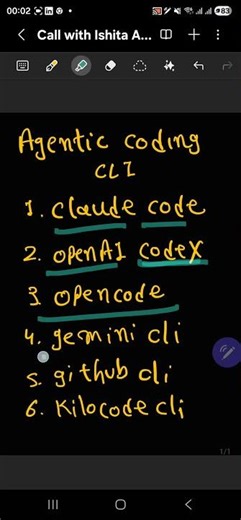 00:02
83
Call with Ishita A...
Agentic coding
CLI
1. Claude code
2. OpenAI CodeX
3. opencode
4. gemini cli
5. github cli
6. Kilocode cli
1/1